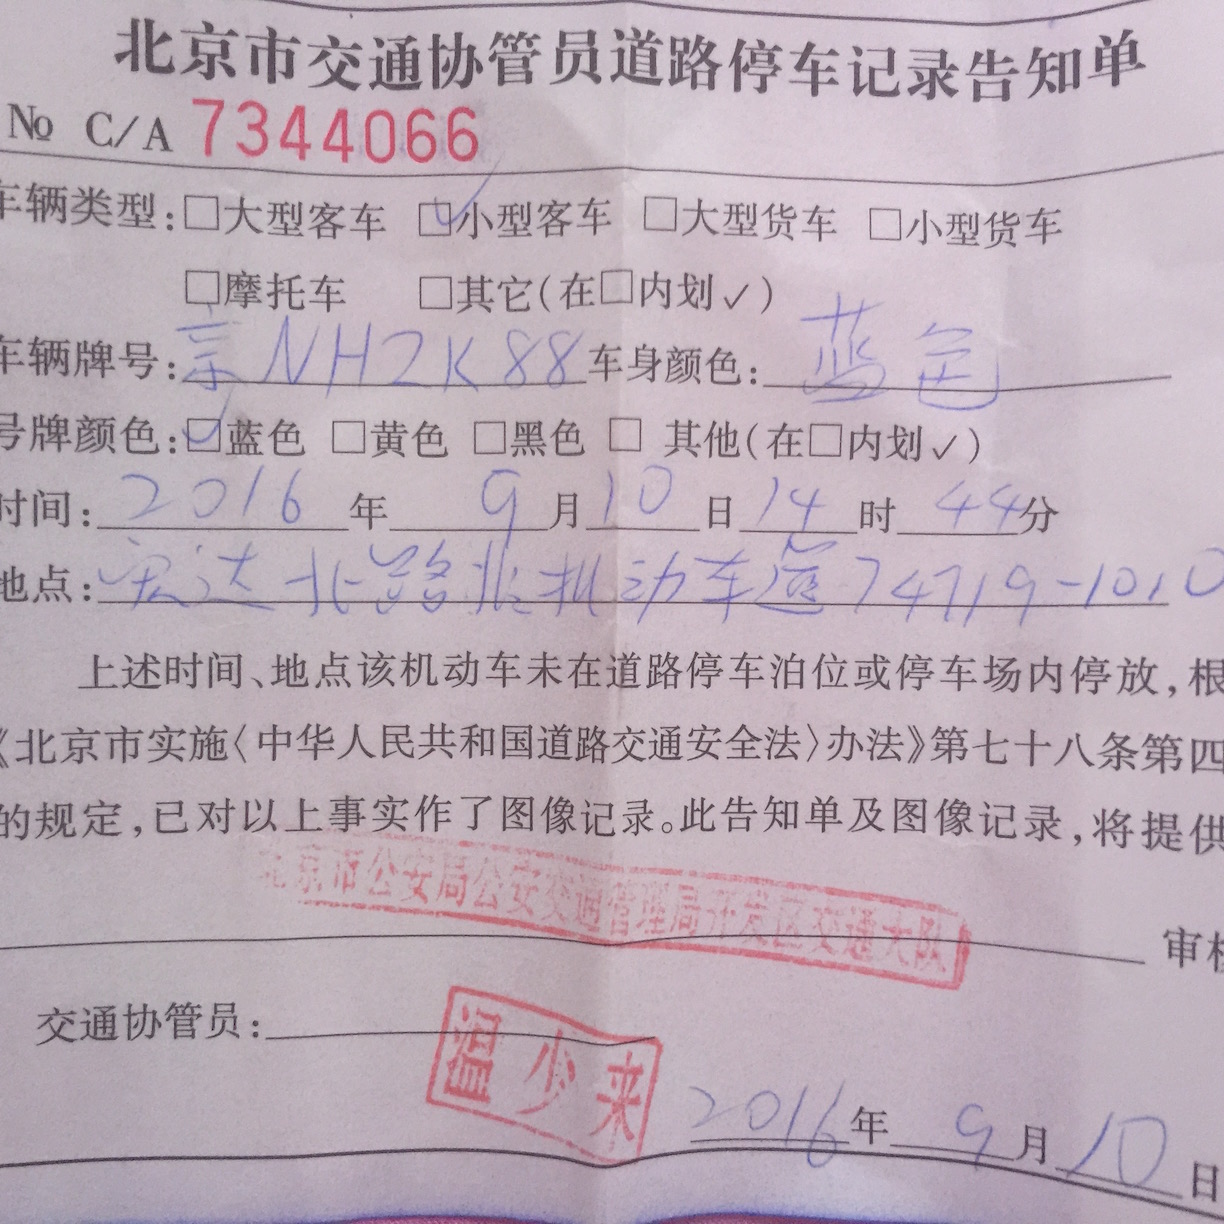 北京市交通协管员道路停车记录告知单
№ C/A 7344066
车辆类型:□大型客车 ☑小型客车 □大型货车 □小型货车
□摩托车 □其它(在□内划✓)
车辆牌号:京NH2K88 车身颜色:蓝色
号牌颜色:☑蓝色 □黄色 □黑色 □ 其他(在□内划✓)
时间:2016年9月10日14时44分
地点:宏达北路非机动车道74719-1010
上述时间、地点该机动车未在道路停车泊位或停车场内停放,根
《北京市实施〈中华人民共和国道路交通安全法〉办法》第七十八条第四
的规定,已对以上事实作了图像记录。此告知单及图像记录,将提供
北京市公安局公安交通管理局开发区交通大队
审核
交通协管员:温少来
2016年9月10日